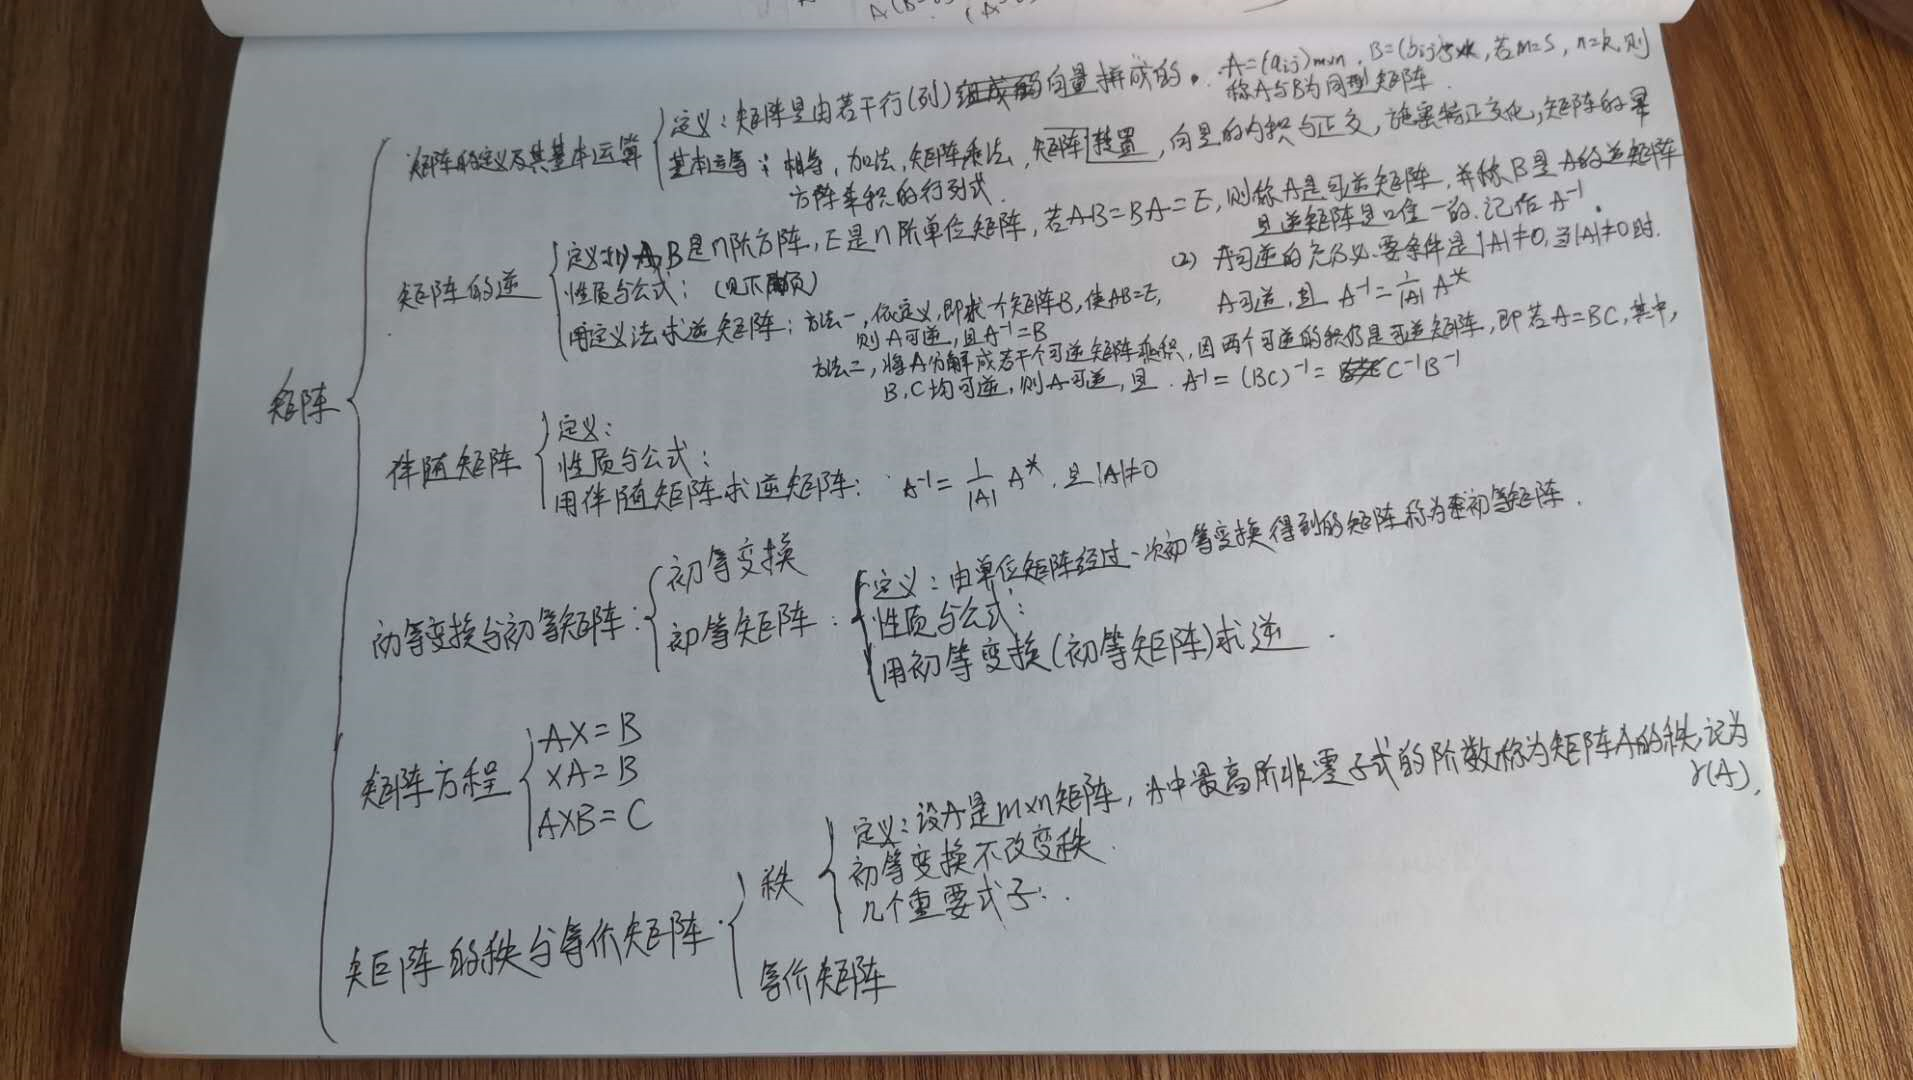 矩阵
矩阵的定义及其基本运算
定义：矩阵是由若干行(列)组成的向量拼成的. A=(aij)m×n, B=(bij)s×k, 若m=s, n=k, 则
称A与B为同型矩阵.
基本运算: 相等, 加法, 矩阵乘法, 矩阵转置, 向量的内积与正交, 施密特正交化, 矩阵的幂
方阵乘积的行列式.
矩阵的逆
定义: (1) A, B是n阶方阵, E是n阶单位矩阵, 若AB=BA=E, 则称A是可逆矩阵, 并称B是A的逆矩阵
且逆矩阵是唯一的. 记作A⁻¹.
(2) A可逆的充分必要条件是|A|≠0, 当|A|≠0时.
A可逆, 且 A⁻¹=1/|A| A*
性质与公式: (见下页)
用定义法求逆矩阵: 方法一, 依定义, 即求一个矩阵B, 使AB=E,
则A可逆, 且A⁻¹=B
方法二, 将A分解成若干个可逆矩阵乘积, 因两个可逆的积仍是可逆矩阵, 即若A=BC, 其中,
B, C均可逆, 则A可逆, 且. A⁻¹=(BC)⁻¹= C⁻¹B⁻¹
伴随矩阵
定义:
性质与公式:
用伴随矩阵求逆矩阵: A⁻¹=1/|A| A*, 且|A|≠0
初等变换与初等矩阵:
初等变换
初等矩阵:
定义: 由单位矩阵经过一次初等变换得到的矩阵称为初等矩阵.
性质与公式:
用初等变换(初等矩阵)求逆
矩阵方程
AX=B
XA=B
AXB=C
矩阵的秩与等价矩阵
秩
定义: 设A是m×n矩阵, A中最高阶非零子式的阶数称为矩阵A的秩, 记为
r(A),
初等变换不改变秩.
几个重要式子:
等价矩阵